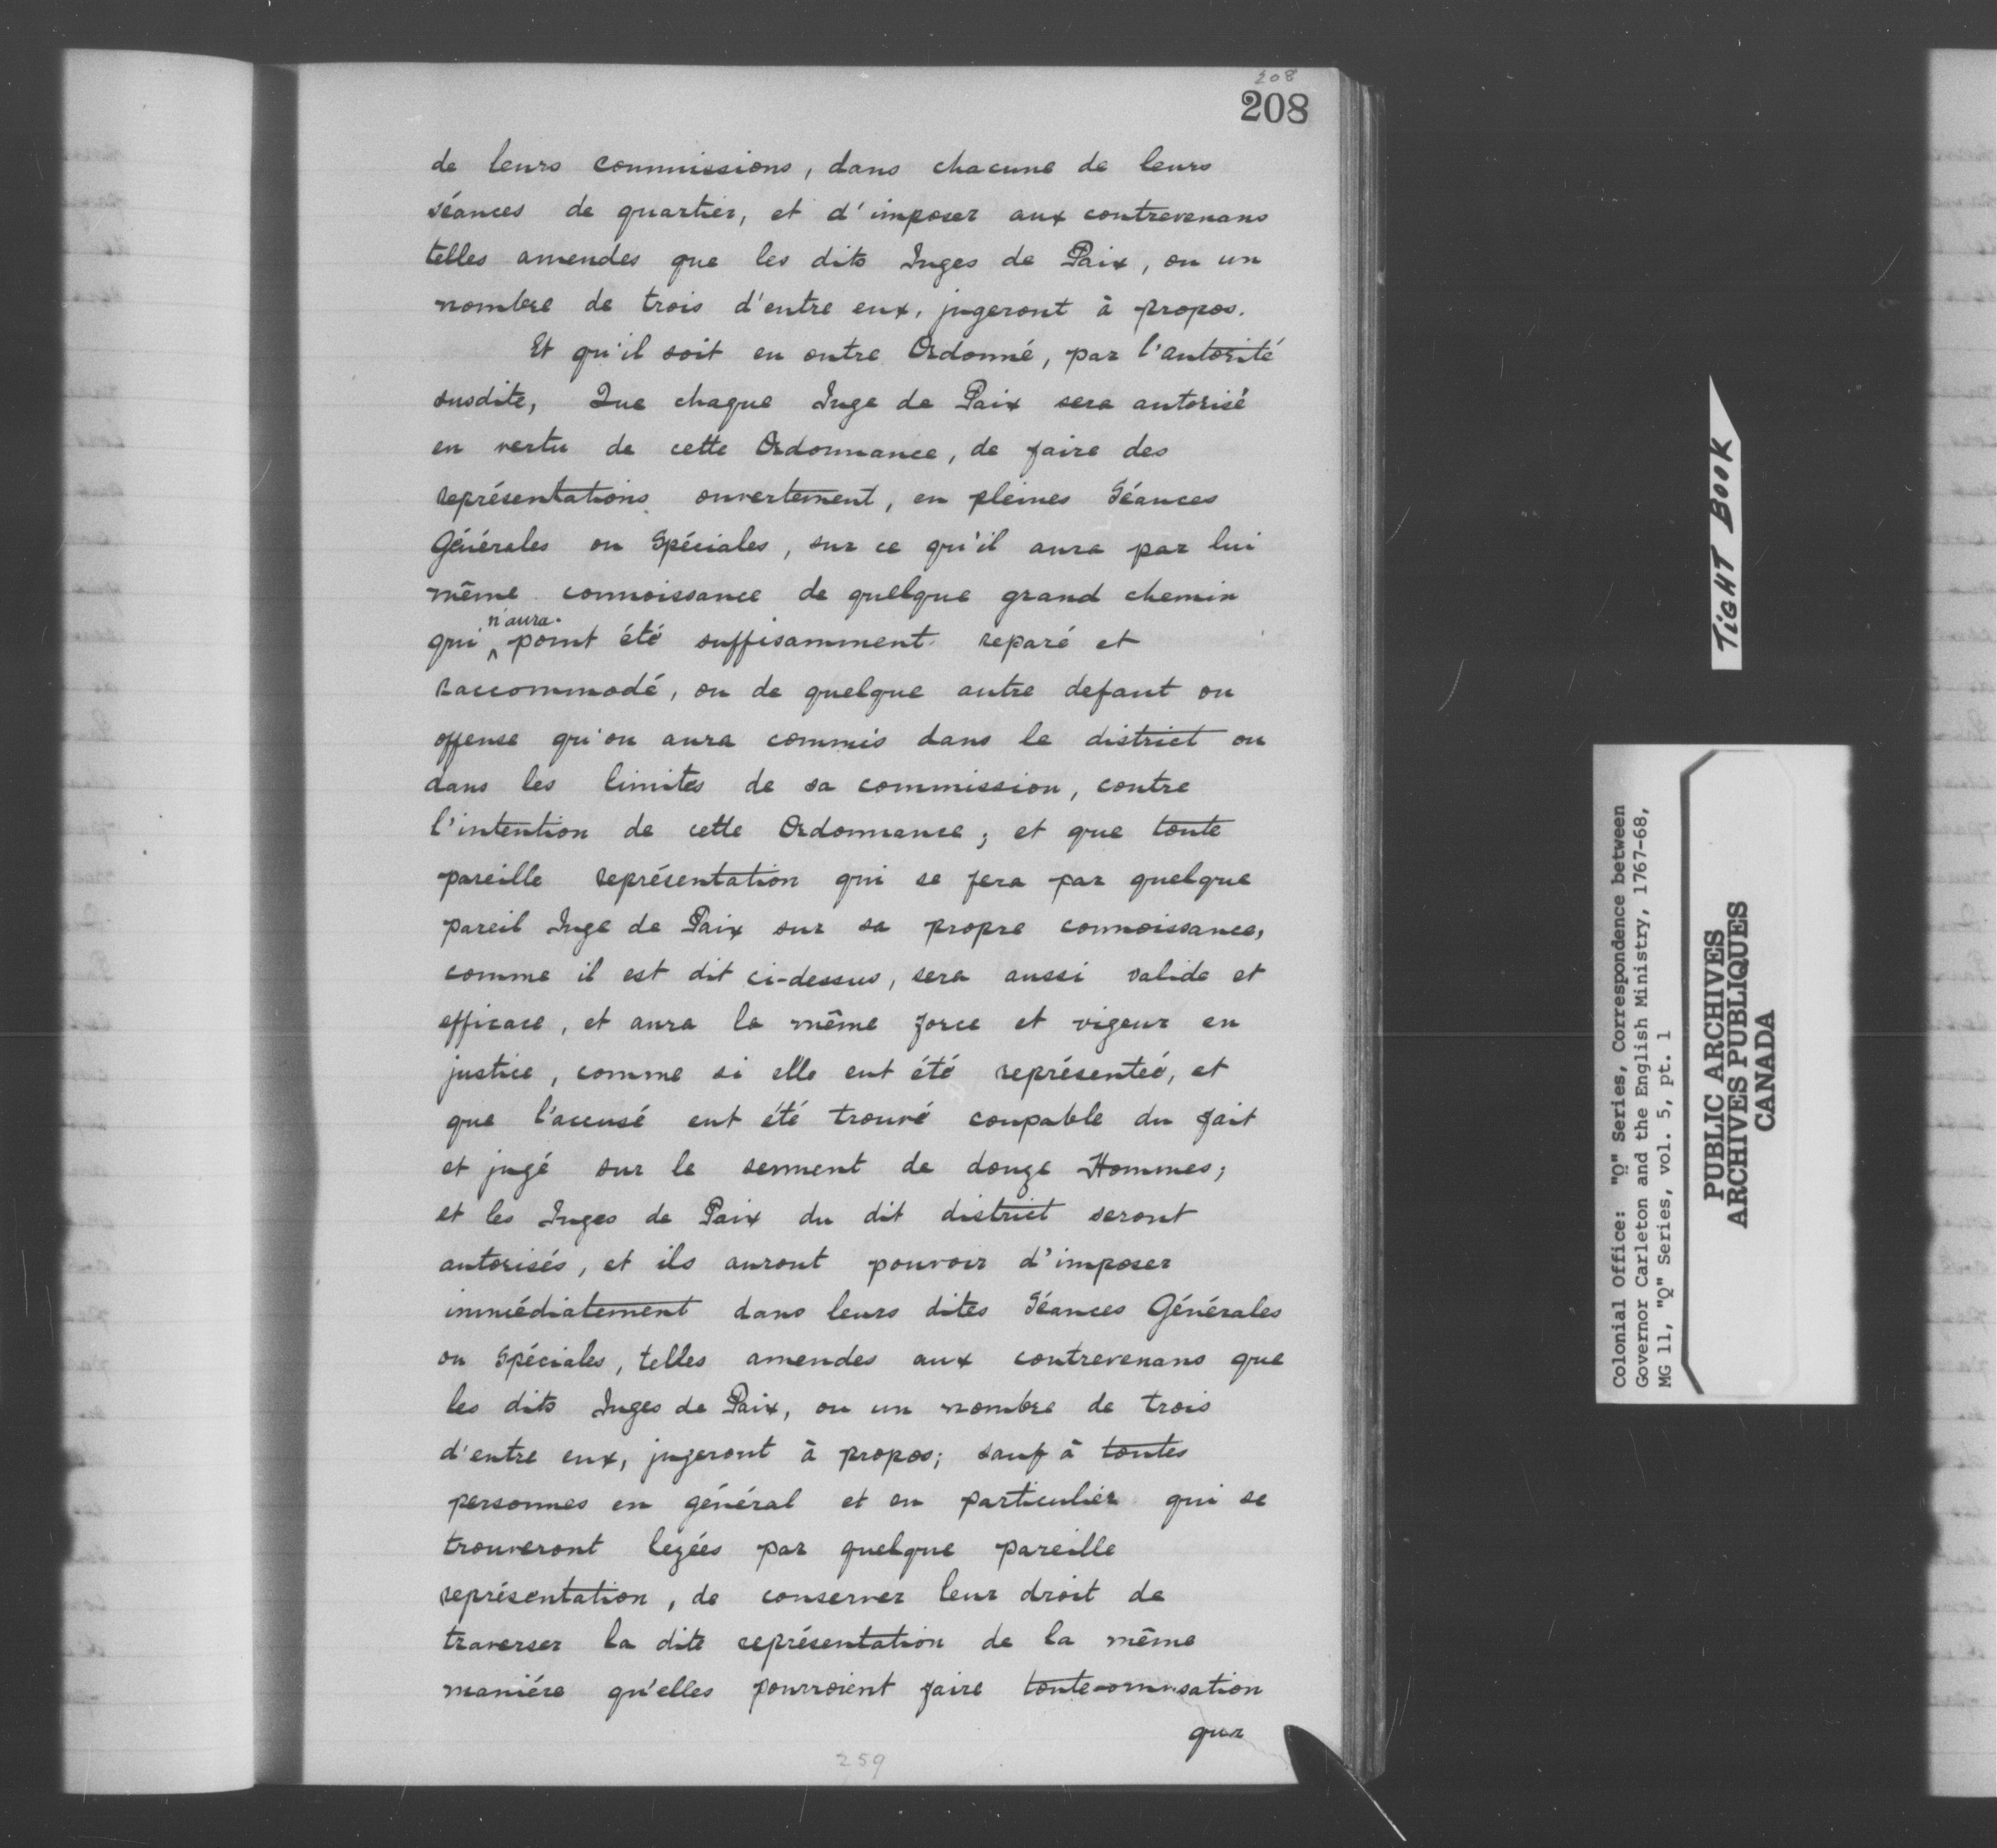 208
208
de leurs commissions, dans chacune de leurs
séances de quartier, et d'imposer aux contrevenans
telles amendes que les dits Juges de Paix, ou un
nombre de trois d'entre eux, jugeront à propos.
Et qu'il soit en outre Ordonné, par l'autorité
susdite, Que chaque Juge de Paix sera autorisé
en vertu de cette Ordonnance, de faire des
représentations ouvertement, en pleines Séances
Générales ou Spéciales, sur ce qu'il aura par lui
même connoissance de quelque grand chemin
qui n'aura point été suffisamment reparé et
raccommodé, ou de quelque autre defaut ou
offense qu'on aura commis dans le district ou
dans les limites de sa commission, contre
l'intention de cette Ordonnance; et que toute
pareille représentation qui se fera par quelque
pareil Juge de Paix sur sa propre connoissance,
comme il est dit ci-dessus, sera aussi valide et
efficace, et aura la même force et vigeur en
justice, comme si elle eut été représenteé, et
que l'accusé eut été trouvé coupable du fait
et jugé sur le serment de douze Hommes;
et les Juges de Paix du dit district seront
autorisés, et ils auront pouvoir d'imposer
immédiatement dans leurs dites Séances Générales
ou Spéciales, telles amendes aux contrevenans que
les dits Juges de Paix, ou un nombre de trois
d'entre eux, jugeront à propos; sauf à toutes
personnes en général et en particulier qui se
trouveront lezées par quelque pareille
représentation, de conserver leur droit de
traverser la dite représentation de la même
maniére qu'elles pourroient faire toute
259
TIGHT BOOK
Colonial Office: "Q" Series, Correspondence between
Governor Carleton and the English Ministry, 1767-68,
MG 11, "Q" Series, vol. 5, pt. 1
PUBLIC ARCHIVES
ARCHIVES PUBLIQUES
CANADA